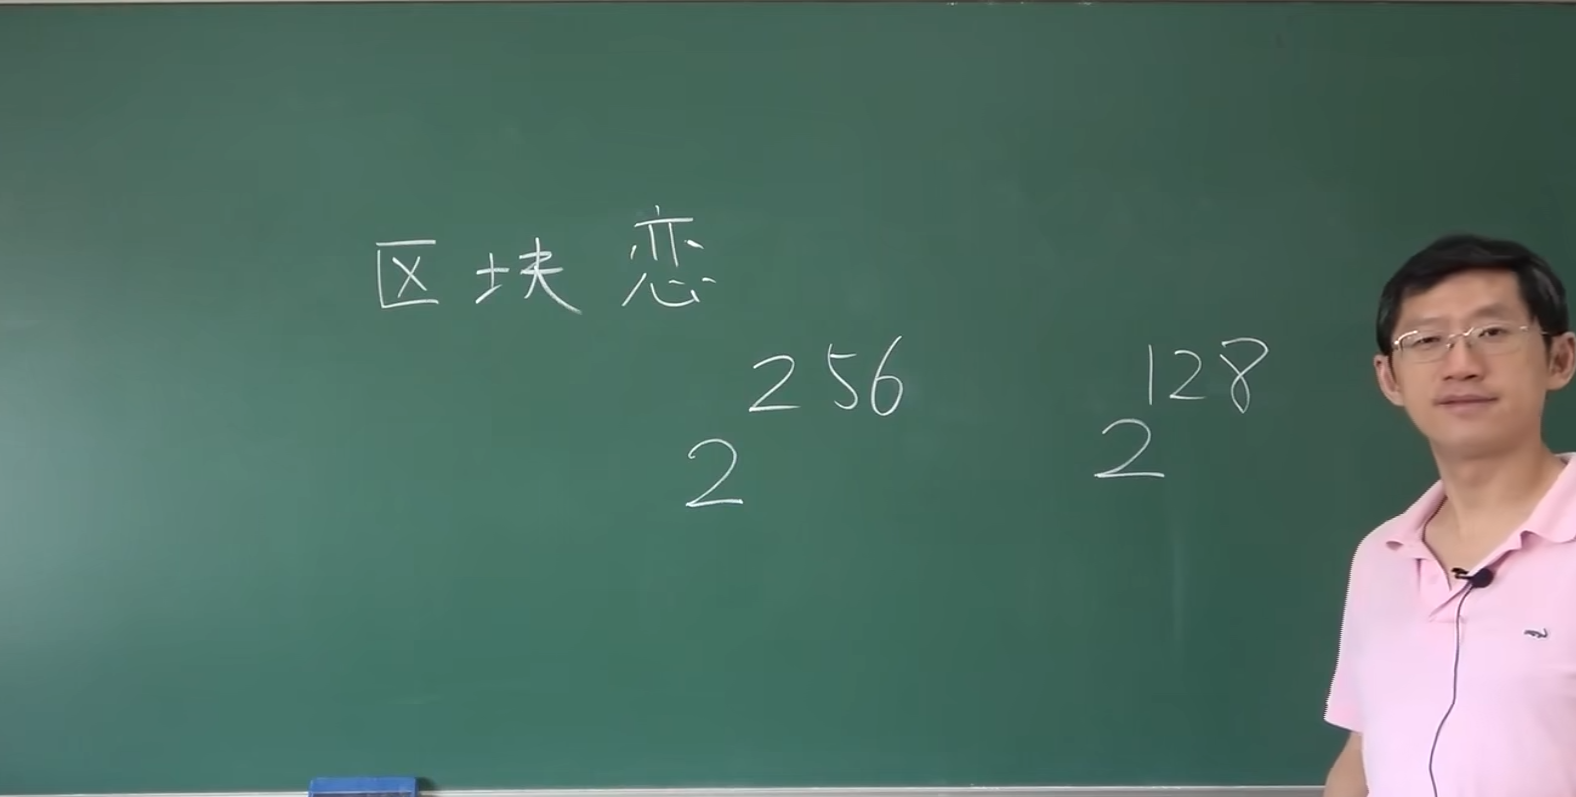 区块恋
2^256 2^128